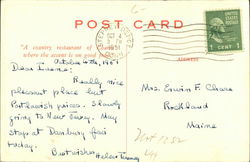 6-
POST CARD
"A country restaurant of
where the accent is on good
ADDRESS
1 CENT 1
October 4th, 1951
Dear
Really nice
pleasant place but
prices. Slowly
going to New Jersey. May
stop at Danbury fair
today.
Best wishes Helen
Mrs Erwin E. Chase
Rockland
Maine